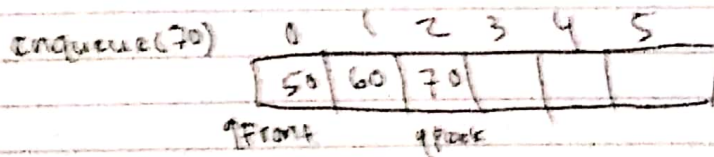 enqueue(70) 0 1 2 3 4 5
50 60 70
qFront qBack